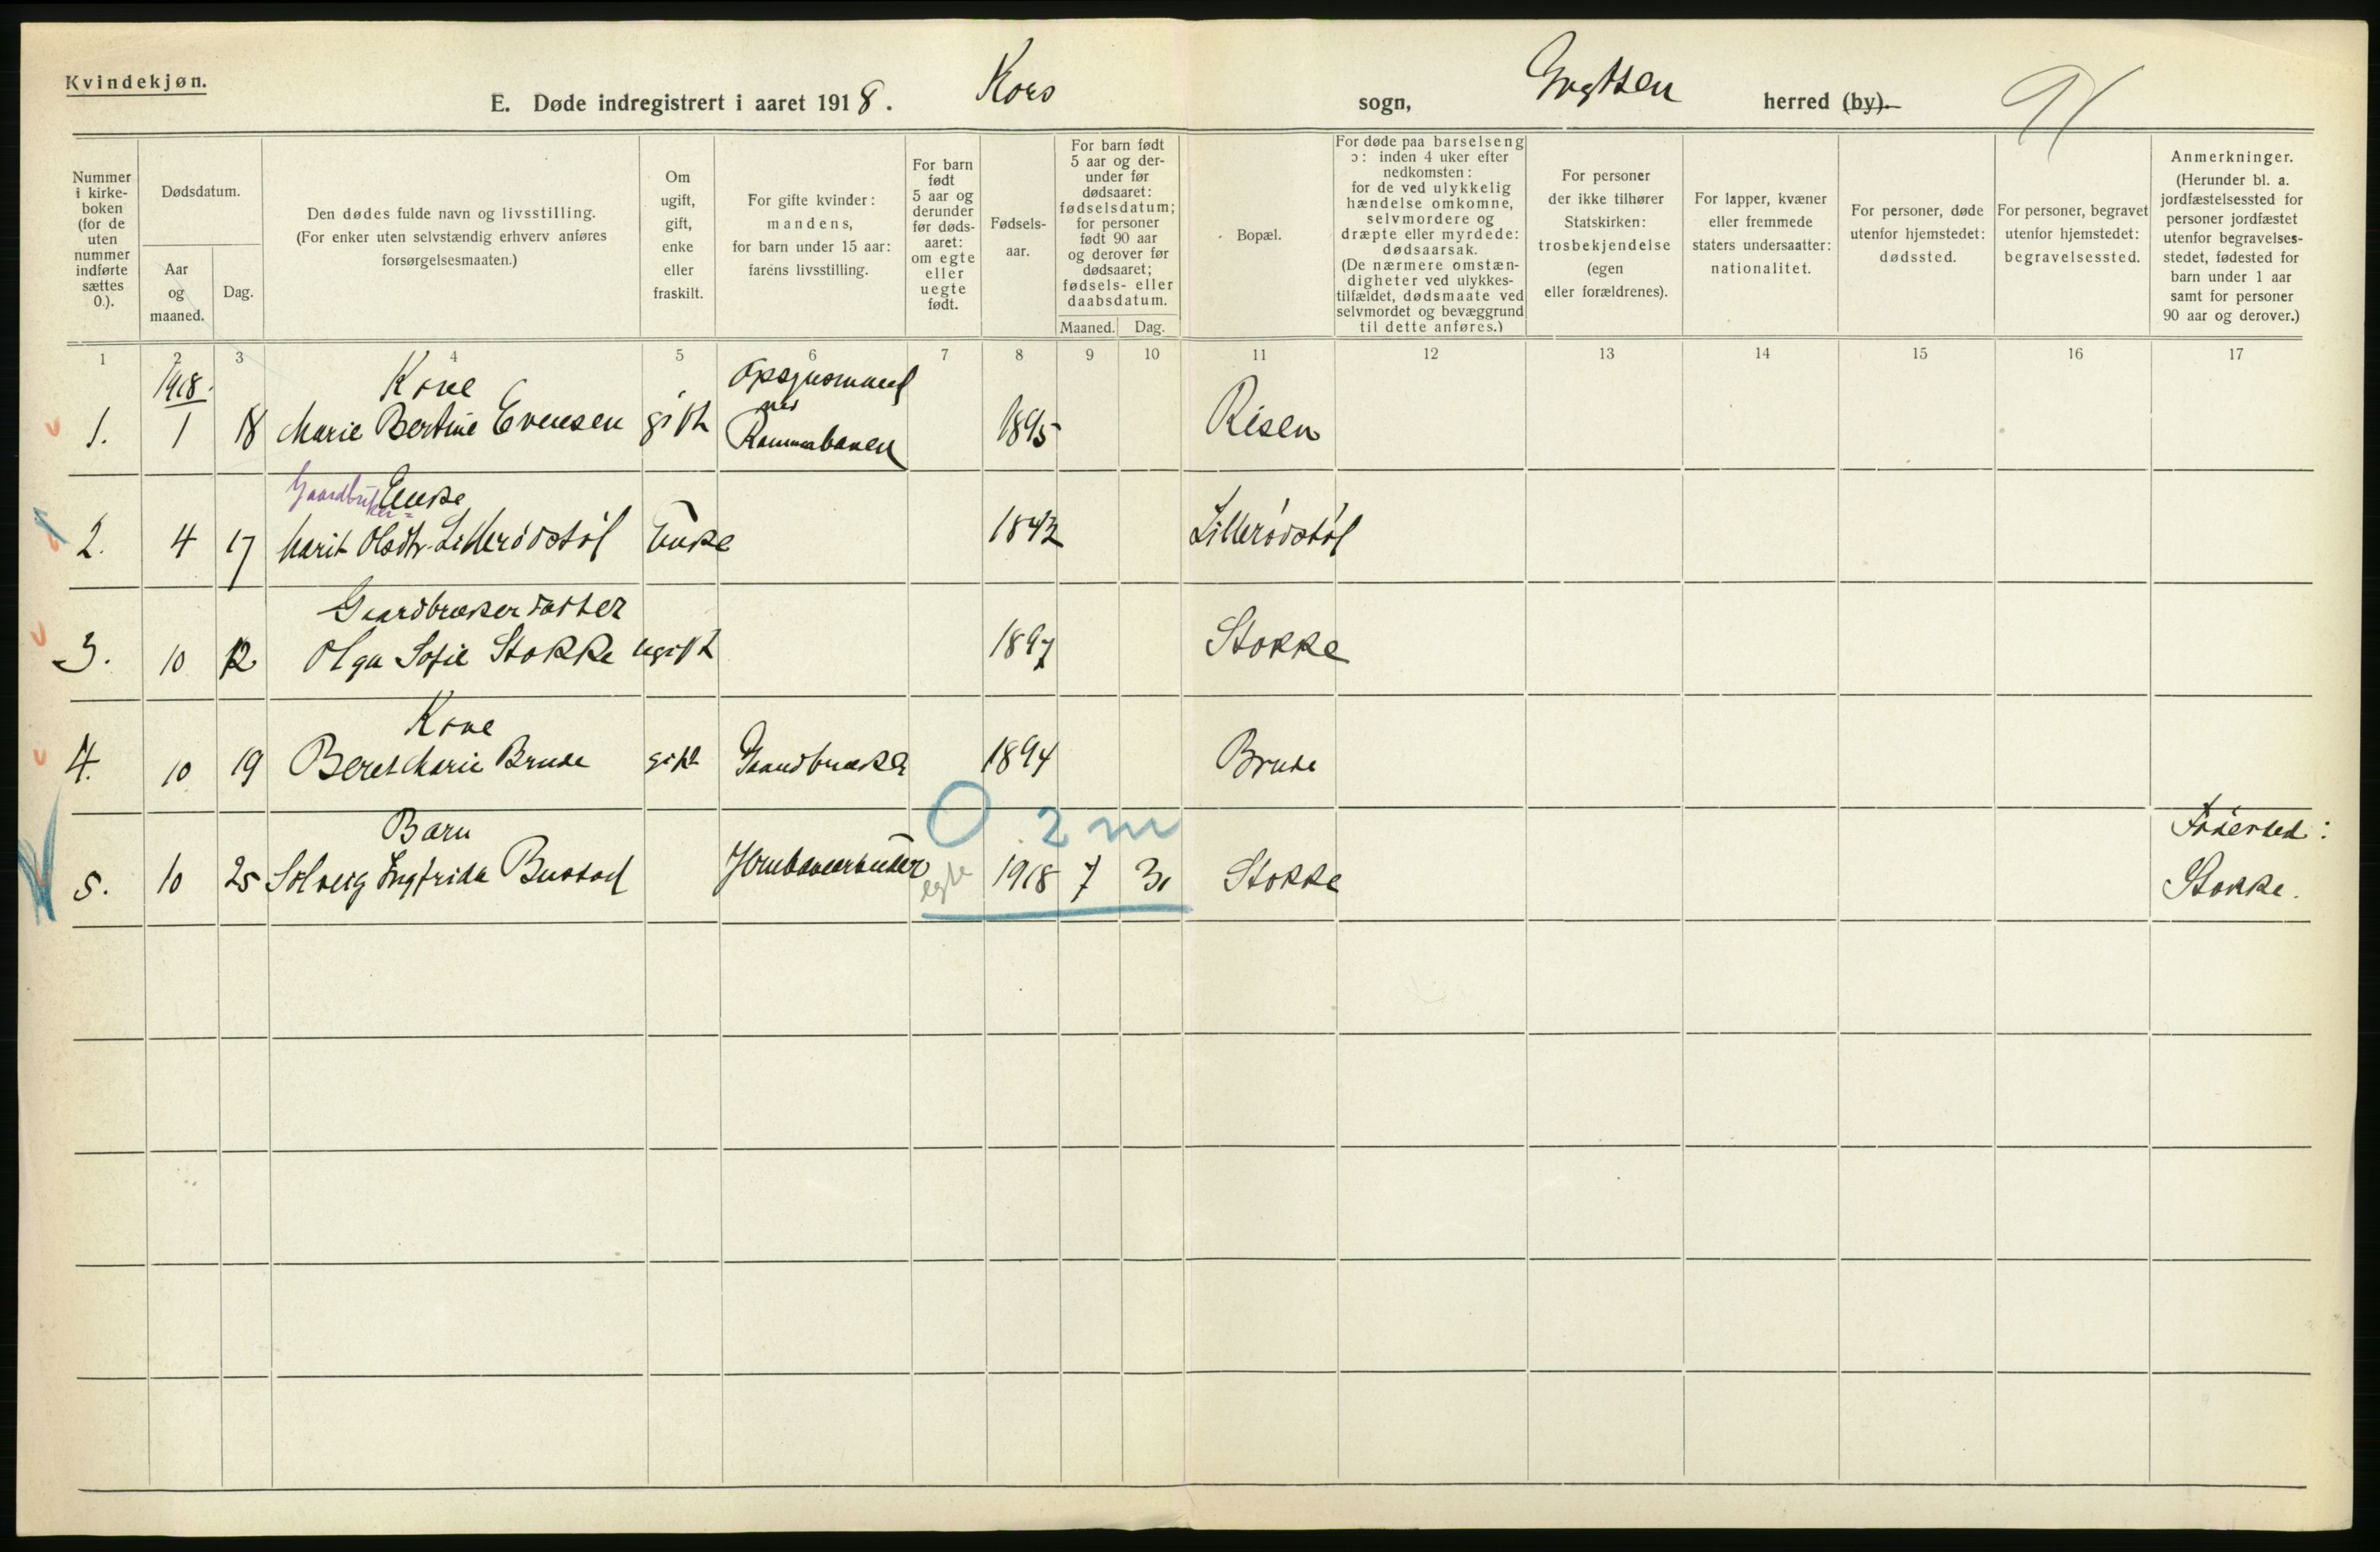 Kvindekjøn.
E. Døde indregistrert i aaret 1918. Kors sogn, Grytten herred (by).
Nummer i kirke- boken (for de uten nummer indførte sættes 0.).
Dødsdatum.
Aar og maaned.
Dag.
Den dødes fulde navn og livsstilling.
(For enker uten selvstændig erhverv anføres
forsørgelsesmaaten.)
Om ugift, gift, enke eller fraskilt.
For gifte kvinder:
mandens,
for barn under 15 aar:
farens livsstilling.
For barn født 5 aar og derunder før døds- aaret: om egte eller uegte født.
Fødsels- aar.
For barn født 5 aar og der- under før dødsaaret: fødselsdatum; for personer født 90 aar og derover før dødsaaret; fødsels- eller daabsdatum.
Maaned. Dag.
Bopæl.
For døde paa barselseng
ɔ: inden 4 uker efter
nedkomsten:
for de ved ulykkelig
hændelse omkomne,
selvmordere og
dræpte eller myrdede:
dødsaarsak.
(De nærmere omstæn-
digheter ved ulykkes-
tilfældet, dødsmaate ved
selvmordet og bevæggrund
til dette anføres.)
For personer
der ikke tilhører
Statskirken:
trosbekjendelse
(egen
eller forældrenes).
For lapper, kvæner
eller fremmede
staters undersaatter:
nationalitet.
For personer, døde
utenfor hjemstedet:
dødssted.
For personer, begravet
utenfor hjemstedet:
begravelsessted.
Anmerkninger.
(Herunder bl. a.
jordfæstelsessted for
personer jordfæstet
utenfor begravelses-
stedet, fødested for
barn under 1 aar
samt for personer
90 aar og derover.)
1 2 3 4 5 6 7 8 9 10 11 12 13 14 15 16 17
1918. Kone Opsynsmand
ved
1. 1 18 Marie Bertine Evensen gift Raumabanen 1895 Risen
Gaardbruker= Enke
2. 4 17 Marit Olsdtr. Lillerødstøl Enke 1842 Lillerødstøl
Gaardbrukerdatter
3. 10 12 Olga Sofie Stokke ugift 1897 Stokke
Kone
4. 10 19 Beret Marie Brude gift Gaardbruker 1894 Brude
Barn 0 2 m Fødested:
5. 10 25 Solveig Ingfrida Bustad Jernbanearbeider egte 1918 7 31 Stokke Stokke.